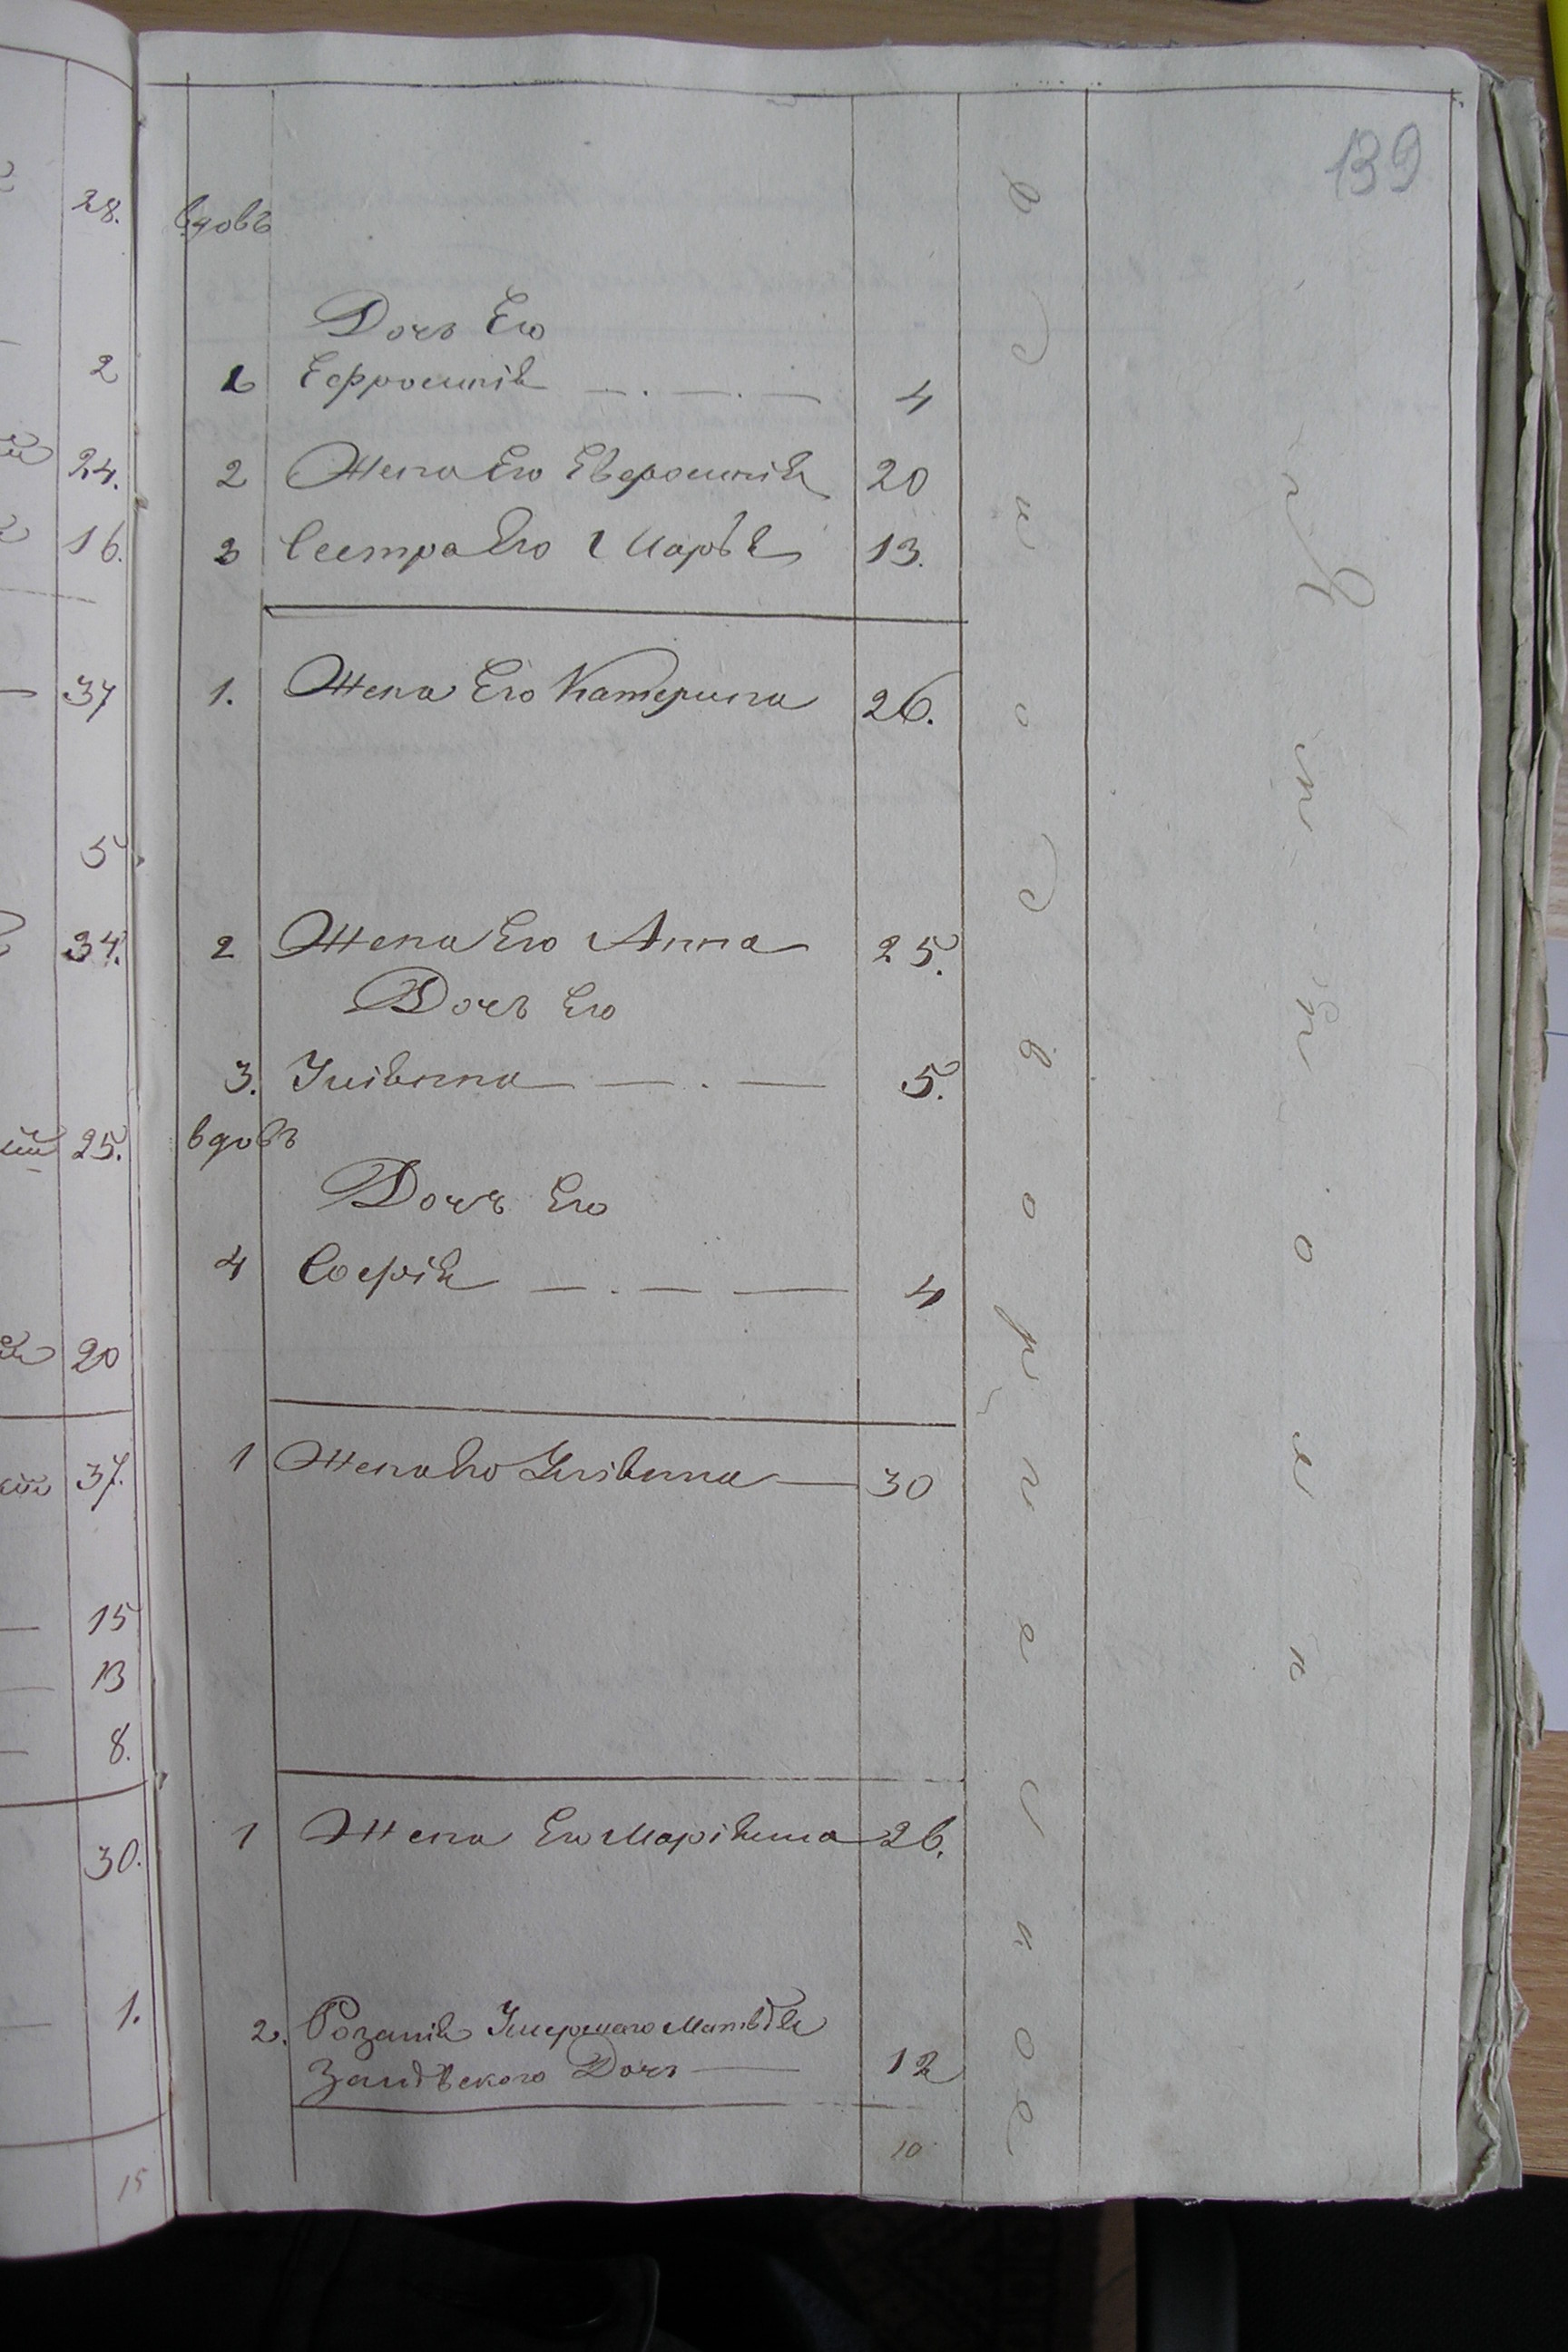 139
28.
вдовъ
Дочь Его
2
1 Ефросинія — . — . — 4
24.
2 Жена Его Евфросинія 20
16.
3 Сестра Его Марья 13.
37
1. Жена Его Катерина 26.
5
34.
2 Жена Его Анна 25.
Дочь Его
3. Юліянна — . — 5.
вдовъ
25.
Дочь Его
4 Софія — . — — 4
20
37.
1 Жена Его Юліянна — 30
15
13
8.
1 Жена Его Маріянна 26.
30.
1.
2. Розалія Умершаго Матвѣя
Дочь — 12
10
15